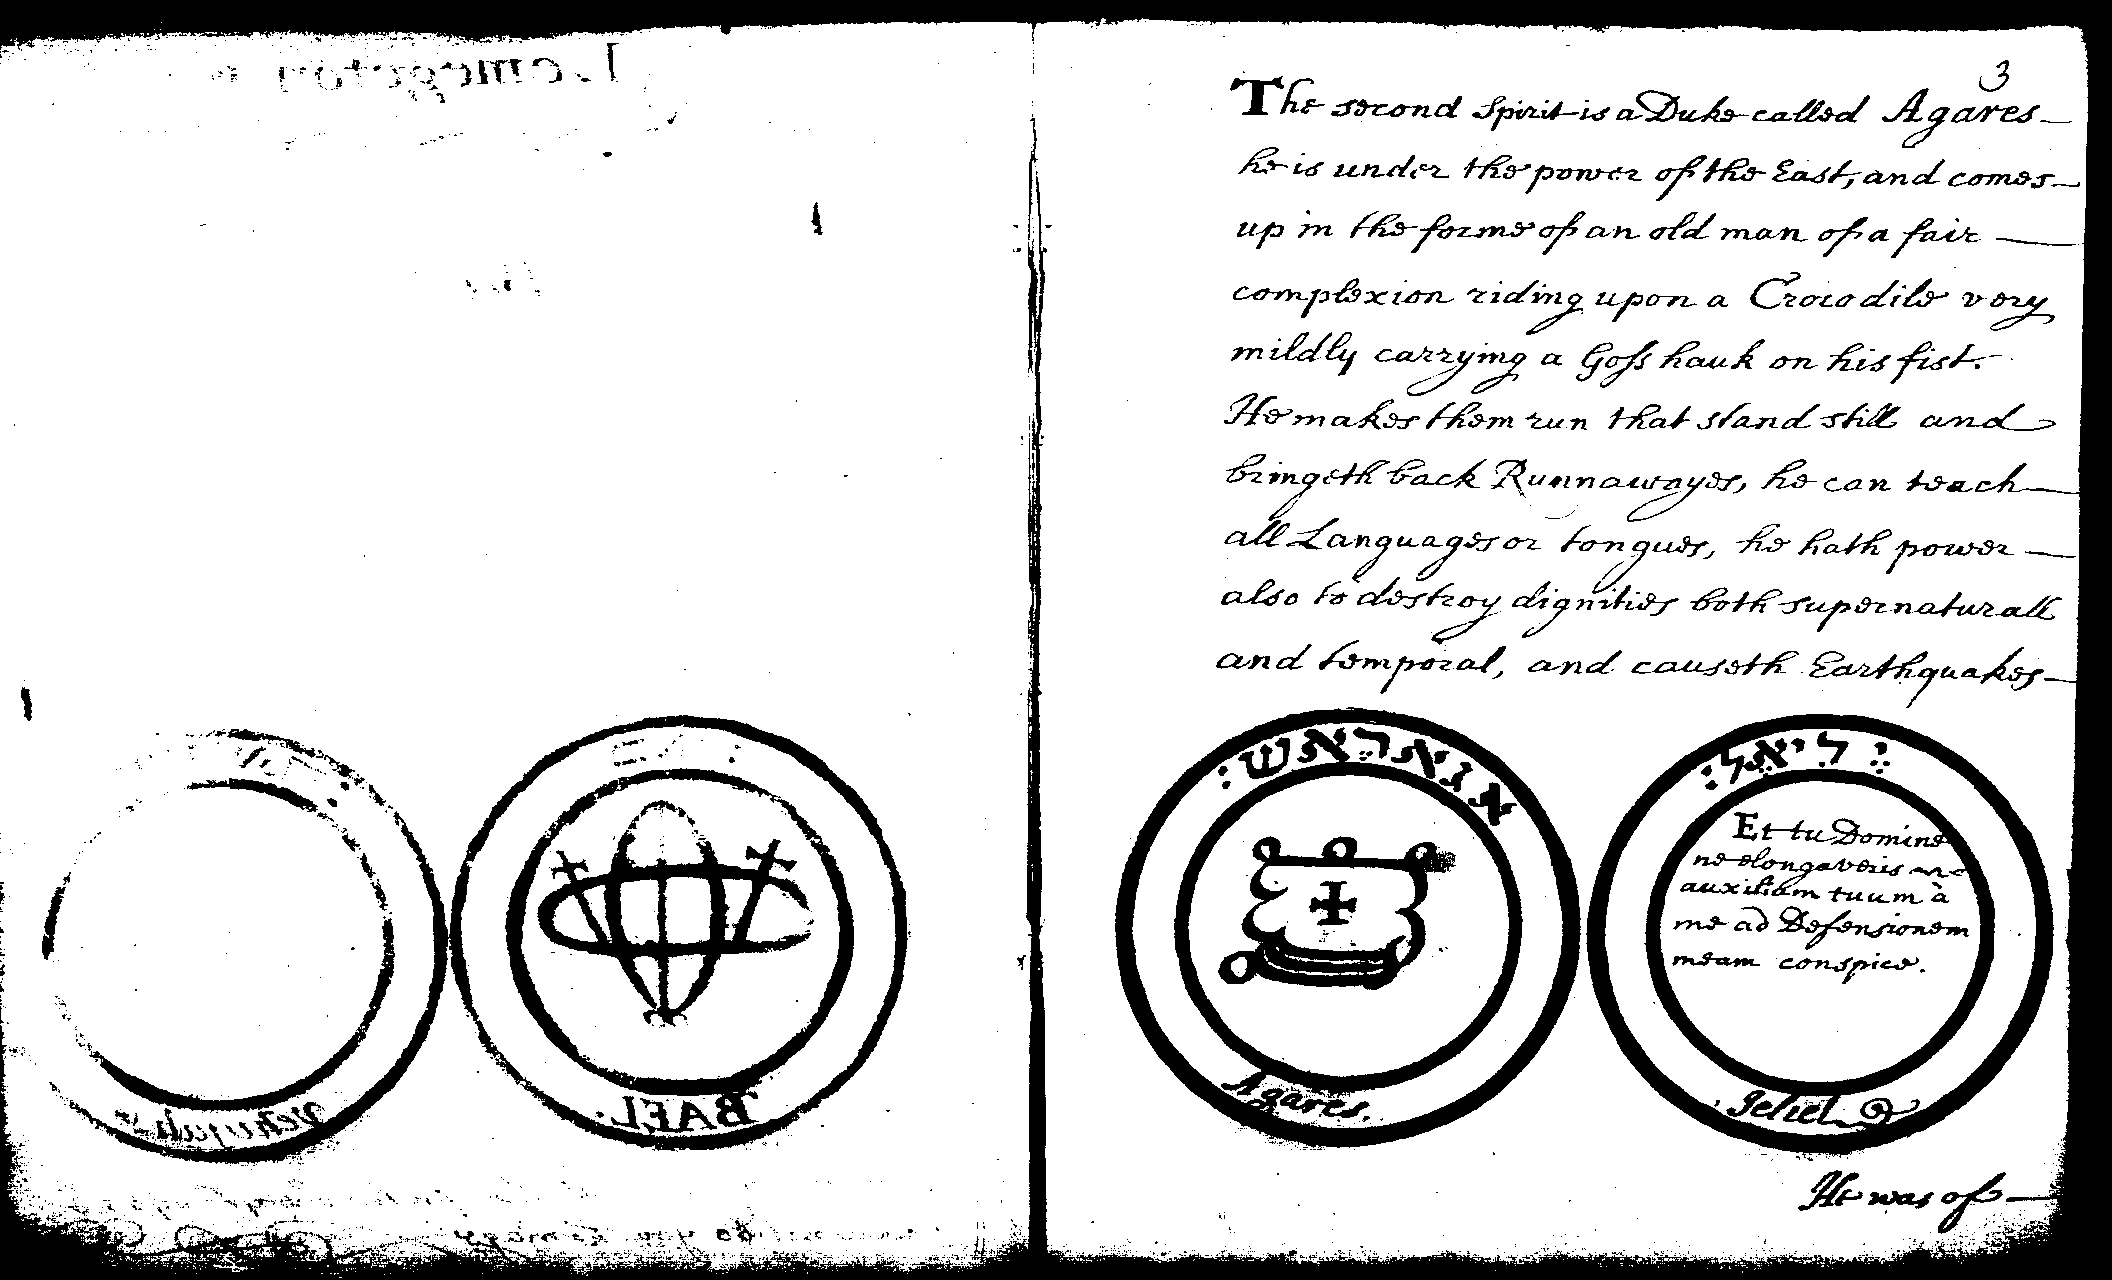 3
The second Spirit is a Duke called Agares
he is under the power of the East, and comes
up in the forme of an old man of a fair
complexion riding upon a Crocodile very
mildly carrying a Goss hauk on his fist.
He makes them run that stand still and
bringeth back Runnawayes, he can teach
all Languages or tongues, he hath power
also to destroy dignities both supernaturall
and temporal, and causeth Earthquakes
אגאראש:
Agares.
ייליאל:
Et tu Domine
ne elongaveris
auxilium tuum à
me ad Defensionem
meam conspice.
Jeliel
He was of
Lemegeton
BAEL:
Vehujah